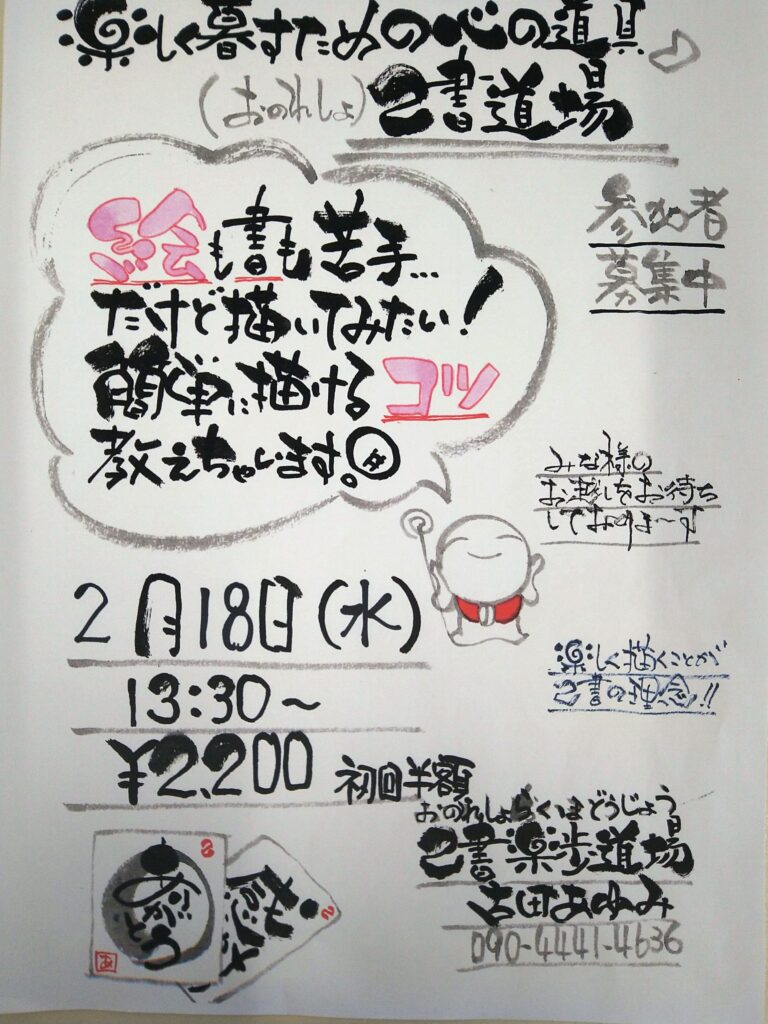 楽しく暮すための心の道具♪
(おのれしょ)己書道場
参加者
募集中
絵も書も苦手…
だけど描いてみたい!
簡単に描けるコツ
教えちゃいます。
みな様の
お越しをお待ち
しておりま〜す
2月18日(水)
13:30〜
¥2,200 初回半額
楽しく描くことが
己書の理念!!
おのれしょらくほどうじょう
己書楽歩道場
古町あゆみ
090-4441-4636
ありがとう
あ